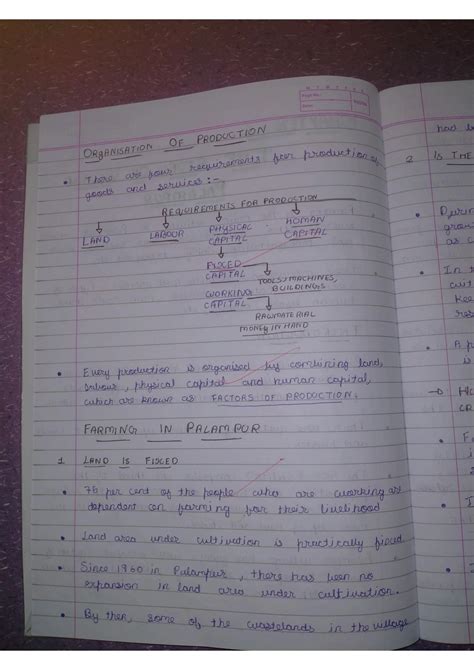 Page No.
Date
ORGANISATION OF PRODUCTION
• There are four requirements for production of
goods and services :-
REQUIREMENTS FOR PRODUCTION
LAND LABOUR PHYSICAL CAPITAL HUMAN CAPITAL
FIXED CAPITAL
TOOLS, MACHINES, BUILDINGS
WORKING CAPITAL
RAWMATERIAL
MONEY IN HAND
• Every production is organised by combining land,
labour, physical capital and human capital,
which are known as FACTORS OF PRODUCTION.
FARMING IN PALAMPUR
1 LAND IS FIXED
• 75 per cent of the people who are working are
dependent on farming for their livelihood
• Land area under cultivation is practically fixed.
• Since 1960 in Palampur, there has been no
expansion in land area under cultivation.
• By then, some of the wastelands in the village
has b
2 IS THE
• Durin
• In
• A p
is